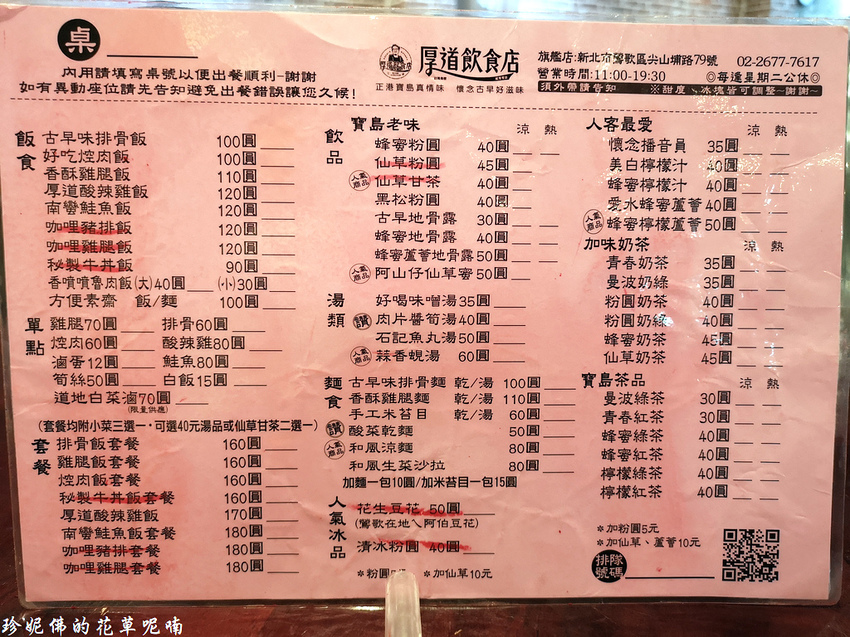 桌
內用請填寫桌號以便出餐順利~謝謝
如有異動座位請先告知避免出餐錯誤讓您久候!
厚道飲食店
正港寶島真情味 懷念古早好滋味
旗艦店:新北市鶯歌區尖山埔路79號 02-2677-7617
營業時間:11:00-19:30 ◎每逢星期二公休◎
須外帶請告知 ※甜度、冰塊皆可調整~謝謝~
飯食
古早味排骨飯 100圓
好吃焢肉飯 100圓
香酥雞腿飯 110圓
厚道酸辣雞飯 120圓
南蠻鮭魚飯 120圓
咖哩豬排飯 120圓
咖哩雞腿飯 120圓
秘製牛丼飯 90圓
香噴噴魯肉飯(大)40圓 (小)30圓
方便素齋 飯/麵 100圓
單點
雞腿70圓 排骨60圓
焢肉60圓 酸辣雞80圓
滷蛋12圓 鮭魚80圓
筍絲50圓 白飯15圓
道地白菜滷70圓
(限量供應)
(套餐均附小菜三選一‧可選40元湯品或仙草甘茶二選一)
套餐
排骨飯套餐 160圓
雞腿飯套餐 160圓
焢肉飯套餐 160圓
秘製牛丼飯套餐 160圓
厚道酸辣雞飯 170圓
南蠻鮭魚飯套餐 180圓
咖哩豬排套餐 180圓
咖哩雞腿套餐 180圓
飲品
寶島老味 涼 熱
蜂蜜粉圓 40圓
仙草粉圓 45圓
人氣商品 仙草甘茶 40圓
黑松粉圓 40圓
古早地骨露 30圓
蜂蜜地骨露 40圓
蜂蜜蘆薈地骨露 50圓
人氣商品 阿山仔仙草蜜 50圓
湯類
好喝味噌湯 35圓
讚 肉片醬筍湯 40圓
石記魚丸湯 50圓
人氣商品 蒜香蜆湯 60圓
麵食
古早味排骨麵 乾/湯 100圓
香酥雞腿麵 乾/湯 110圓
手工米苔目 乾/湯 60圓
讚 酸菜乾麵 50圓
人氣商品 和風涼麵 80圓
和風生菜沙拉 80圓
加麵一包10圓/加米苔目一包15圓
人氣冰品
花生豆花 50圓
(鶯歌在地ㄟ阿伯豆花)
清冰粉圓 40圓
*粉圓 元 *加仙草10元
人客最愛 涼 熱
懷念播音員 35圓
美白檸檬汁 40圓
蜂蜜檸檬汁 40圓
愛水蜂蜜蘆薈 40圓
人氣商品 蜂蜜檸檬蘆薈 50圓
加味奶茶 涼 熱
青春奶茶 35圓
曼波奶綠 35圓
粉圓奶茶 40圓
粉圓奶綠 40圓
蜂蜜奶茶 45圓
仙草奶茶 45圓
寶島茶品 涼 熱
曼波綠茶 30圓
青春紅茶 30圓
蜂蜜綠茶 40圓
蜂蜜紅茶 40圓
檸檬綠茶 40圓
檸檬紅茶 40圓
*加粉圓5元
*加仙草、蘆薈10元
排隊號碼
珍妮佛的花草呢喃